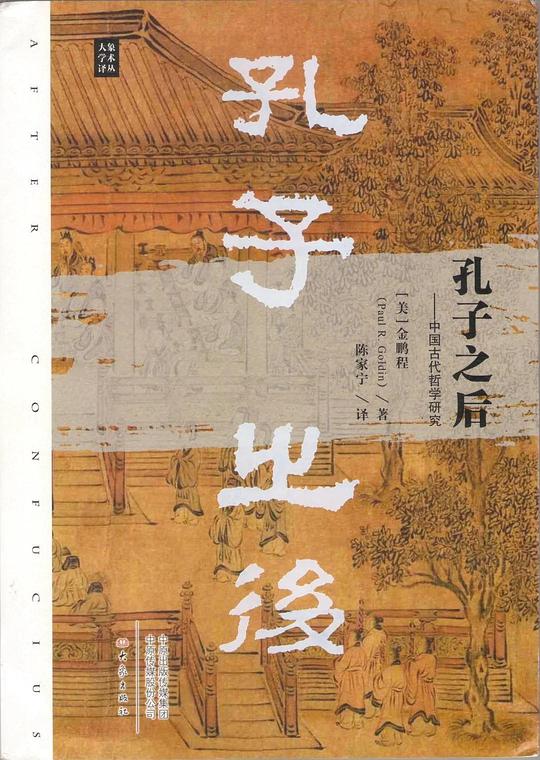 大象
学术
译丛
孔子之後
孔子之后
——中国古代哲学研究
［美］金鹏程
(Paul R. Goldin)／著
陈家宁／译
中原出版传媒集团
中原传媒股份公司
大象出版社
AFTER CONFUCIUS